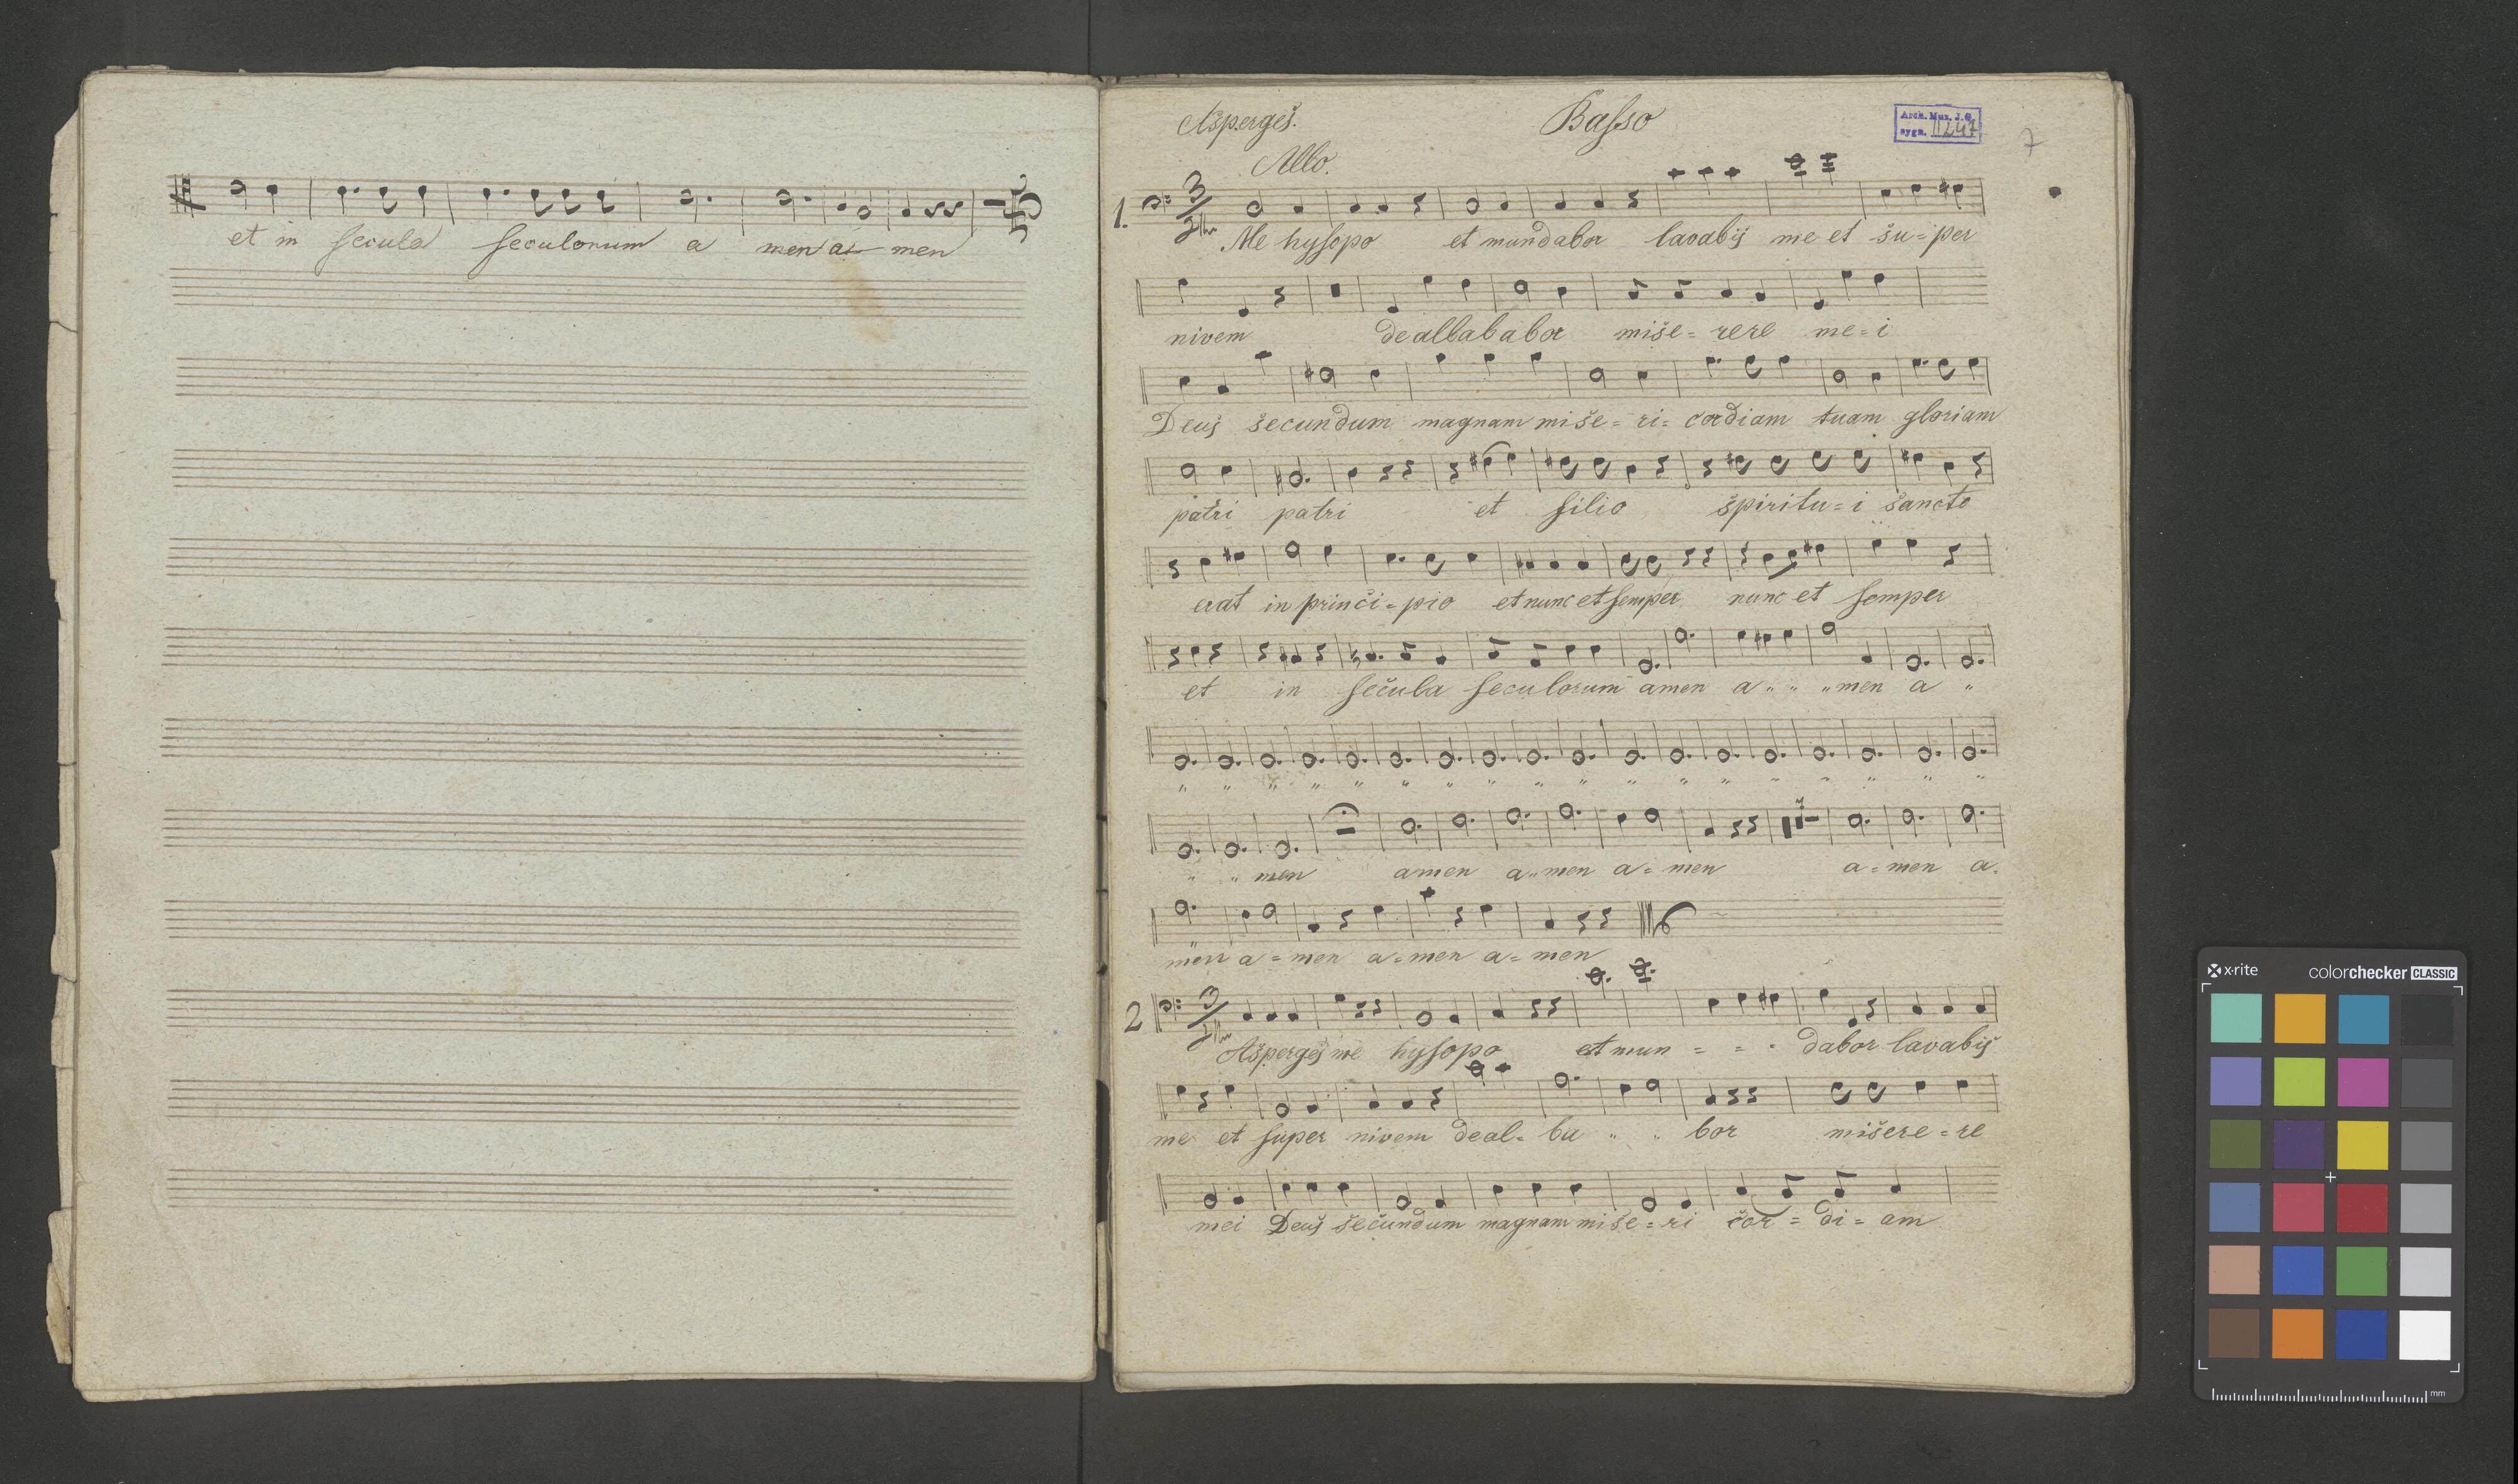 et in secula seculorum a men a men
Ašpergeš. Basso
Arch. Muz. J.G.
sygn. II 247
7
Allo.
1. 3/4
Me hysopo et mundabor lavabiš me et šu=per
nivem deallababor miše=rere me=i
Deuš šecundum magnam miše=ri=cordiam tuam gloriam
patri patri et filio špiritu=i šancto
erat in princi=pio et nunc et semper nunc et semper
et in sečula seculorum amen a " " "men a "
" " " " " " " " " " " " " " " " " "
" " men amen a"men a=men a=men a.
men a=men a=men a=men
2 3/4
Ašpergeš me hysopo et mun = = - dabor lavabiš
me et super nivem deal=ba " " bor mišere=re
mei Deuš šečundum magnam miše=ri čor=di=am
x-rite colorchecker CLASSIC
mm